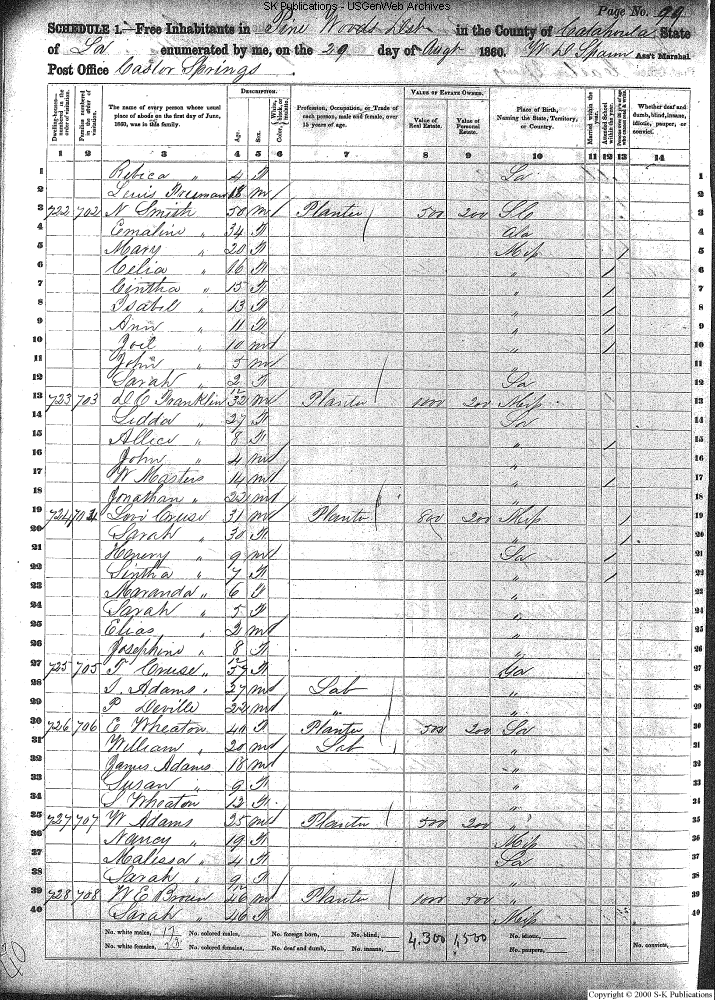 SK Publications - USGenWeb Archives
Page No. 99
SCHEDULE 1.—Free Inhabitants in Pine Woods Dist in the County of Catahoula State
of La. enumerated by me, on the 29 day of Augt 1860. W D Spann Ass't Marshal.
Post Office Castor Springs
DESCRIPTION. VALUE OF ESTATE OWNED.
Dwelling-houses—numbered in the order of visitation. Families numbered in the order of visitation. The name of every person whose usual place of abode on the first day of June, 1860, was in this family. Age. Sex. Color, White, black, or mulatto. Profession, Occupation, or Trade of each person, male and female, over 15 years of age. Value of Real Estate. Value of Personal Estate. Place of Birth, Naming the State, Territory, or Country. Married within the year. Attended School within the year. Persons over 20 y'rs of age who cannot read & write. Whether deaf and dumb, blind, insane, idiotic, pauper, or convict.
1 2 3 4 5 6 7 8 9 10 11 12 13 14
1 Rebica " 4 F La 1
2 Lewis Freeman 18 m / 2
3 722 702 N Smith 50 m Planter 500 200 3
4 Emaline " 34 F Ala 4
5 Mary " 20 F Miss / 5
6 Celia " 16 F " / 6
7 Cintha " 15 F " / 7
8 Isabel " 13 F " / 8
9 Ann " 11 F " / 9
10 Joel " 10 m " / 10
11 John " 5 m " 11
12 Sarah " 2 F La 12
13 723 703 D C Franklin 32 m Planter 1000 200 Miss 13
14 Lidda " 27 F La 14
15 Allice " 8 F " / 15
16 John " 4 m " 16
17 W Masters 14 m " / 17
18 Jonathan " 22 m " 18
19 724 704 Levi Cruse 31 m Planter 800 200 Miss / 19
20 Sarah " 30 F " / 20
21 Henery " 9 m La / 21
22 Sintha " 7 F " / 22
23 Maranda " 6 F " 23
24 Sarah " 5 F " 24
25 Elias " 2 m " 25
26 Josephine " 8/12 F " 26
27 725 705 T Cruse " 57 F Ga 27
28 S. Adams " 27 m Lab " 28
29 P Deville 22 m " " 29
30 726 706 E Wheaton 40 F Planter 500 200 La 30
31 William " 20 m Lab " 31
32 James Adams 18 m " 32
33 Susan " 9 F " 33
34 S Wheaton 12 F " 34
35 727 707 W Adams 25 m Planter 500 200 " 35
36 Nancy " 19 F Miss 36
37 Malissa " 4 F La 37
38 Sarah " 9/12 F " 38
39 728 708 W E Brown 46 m Planter 1000 500 " 39
40 Sarah " 46 F Miss 40
No. white males, 17 No. colored males, No. foreign born, No. blind, 4,300 1,500 No. idiotic,
No. white females, 23 No. colored females, No. deaf and dumb, No. insane, No. paupers, No. convicts,
Copyright © 2000 S-K Publications